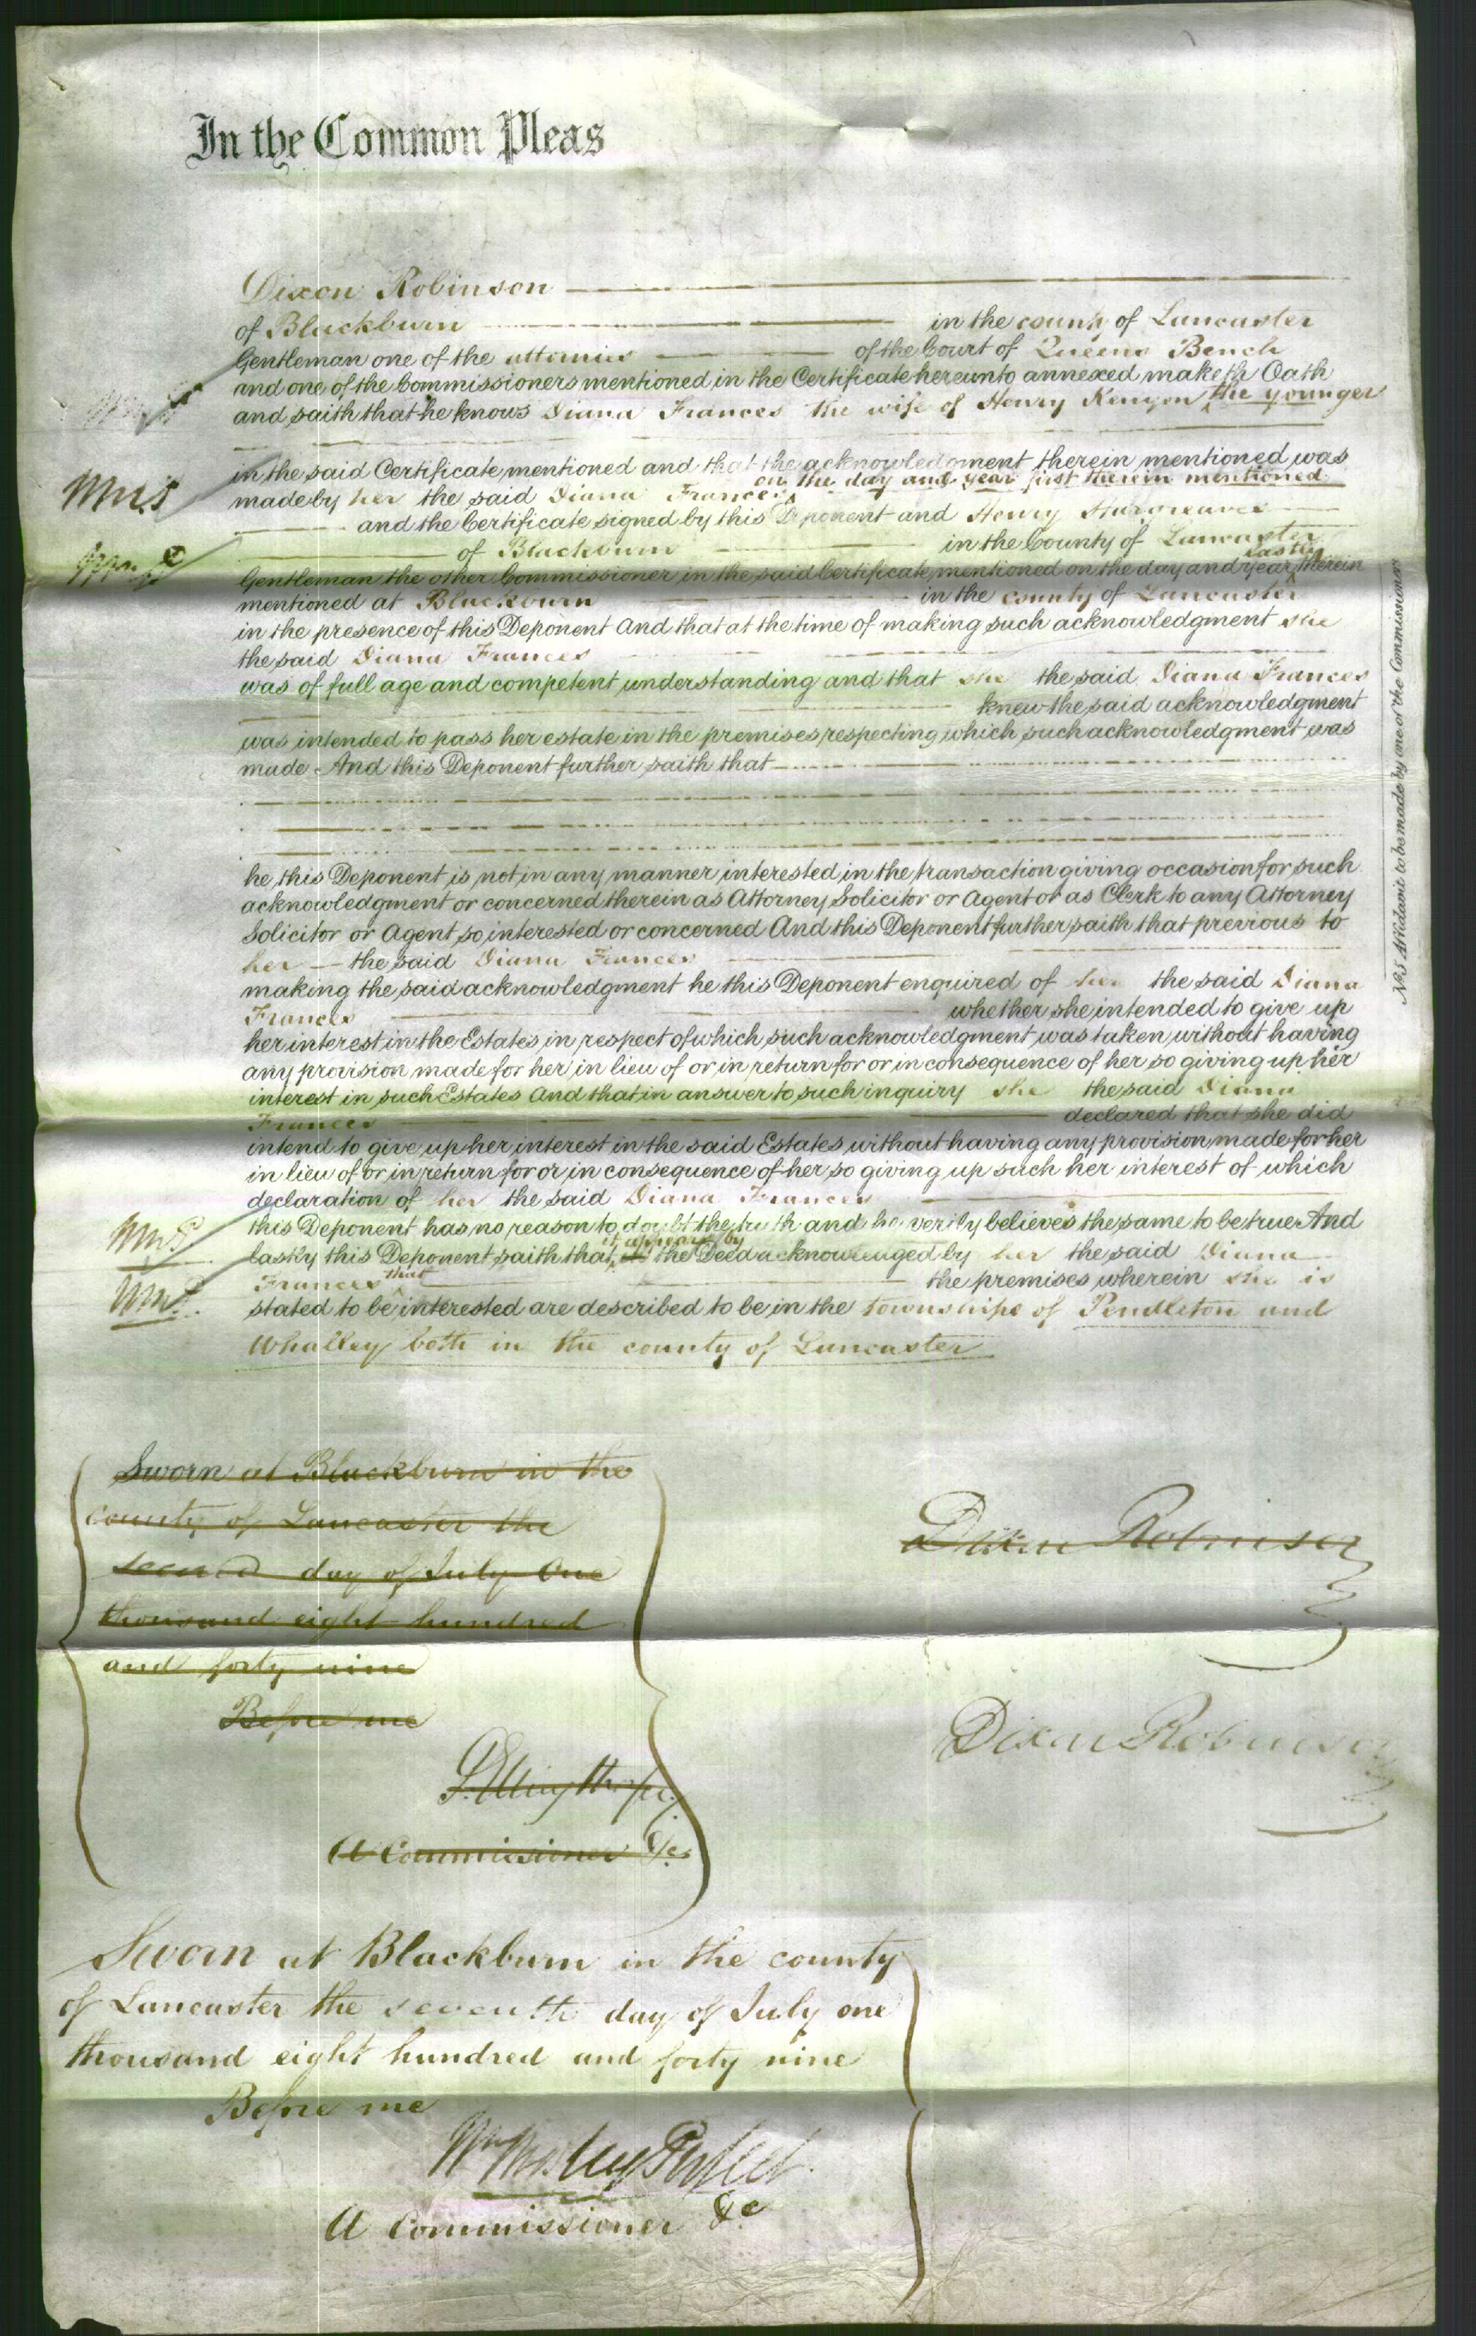 In the Common Pleas
Dixon Robinson
of Blackburn in the county of Lancaster
Gentleman one of the attornies of the Court of Queens Bench
and one of the Commissioners mentioned in the Certificate hereunto annexed maketh Oath
and saith that he knows Diana Frances the wife of Henry Kenyon the younger
in the said Certificate mentioned and that the acknowledgment therein mentioned was
on the day and year first therein mentioned
made by her the said Diana Frances
and the Certificate signed by this Deponent and Henry Hargreaves
of Blackburn in the County of Lancaster
lastly
Gentleman the other Commissioner in the said Certificate mentioned on the day and year therein
mentioned at Blackburn in the county of Lancaster
in the presence of this Deponent And that at the time of making such acknowledgment she
the said Diana Frances
was of full age and competent understanding and that she the said Diana Frances
knew the said acknowledgment
was intended to pass her estate in the premises respecting which such acknowledgment was
made And this Deponent further saith that
he this Deponent is not in any manner interested in the transaction giving occasion for such
acknowledgment or concerned therein as Attorney Solicitor or Agent or as Clerk to any Attorney
Solicitor or Agent so interested or concerned And this Deponent further saith that previous to
her the said Diana Frances
making the said acknowledgment he this Deponent enquired of her the said Diana
Frances whether she intended to give up
her interest in the Estates in respect of which such acknowledgment was taken without having
any provision made for her in lieu of or in return for or in consequence of her so giving up her
interest in such Estates And that in answer to such inquiry she the said Diana
Frances declared that she did
intend to give up her interest in the said Estates without having any provision made for her
in lieu of or in return for or in consequence of her so giving up such her interest of which
declaration of her the said Diana Frances
this Deponent has no reason to doubt the truth and he verily believes the same to be true And
it appears by
lastly this Deponent saith that in the Deed acknowledged by her the said Diana
Frances that the premises wherein she is
stated to be interested are described to be in the townships of Pendleton and
Whalley both in the county of Lancaster
No. 5 Affidavit to be made by one of the Commissioners
Sworn at Blackburn in the
county of Lancaster the
second day of July One
thousand eight hundred
and forty nine
Before me
A Commissioner &c
Dixon Robinson
Dixon Robinson
Sworn at Blackburn in the county
of Lancaster the seventh day of July one
thousand eight hundred and forty nine
Before me
A Commissioner &c